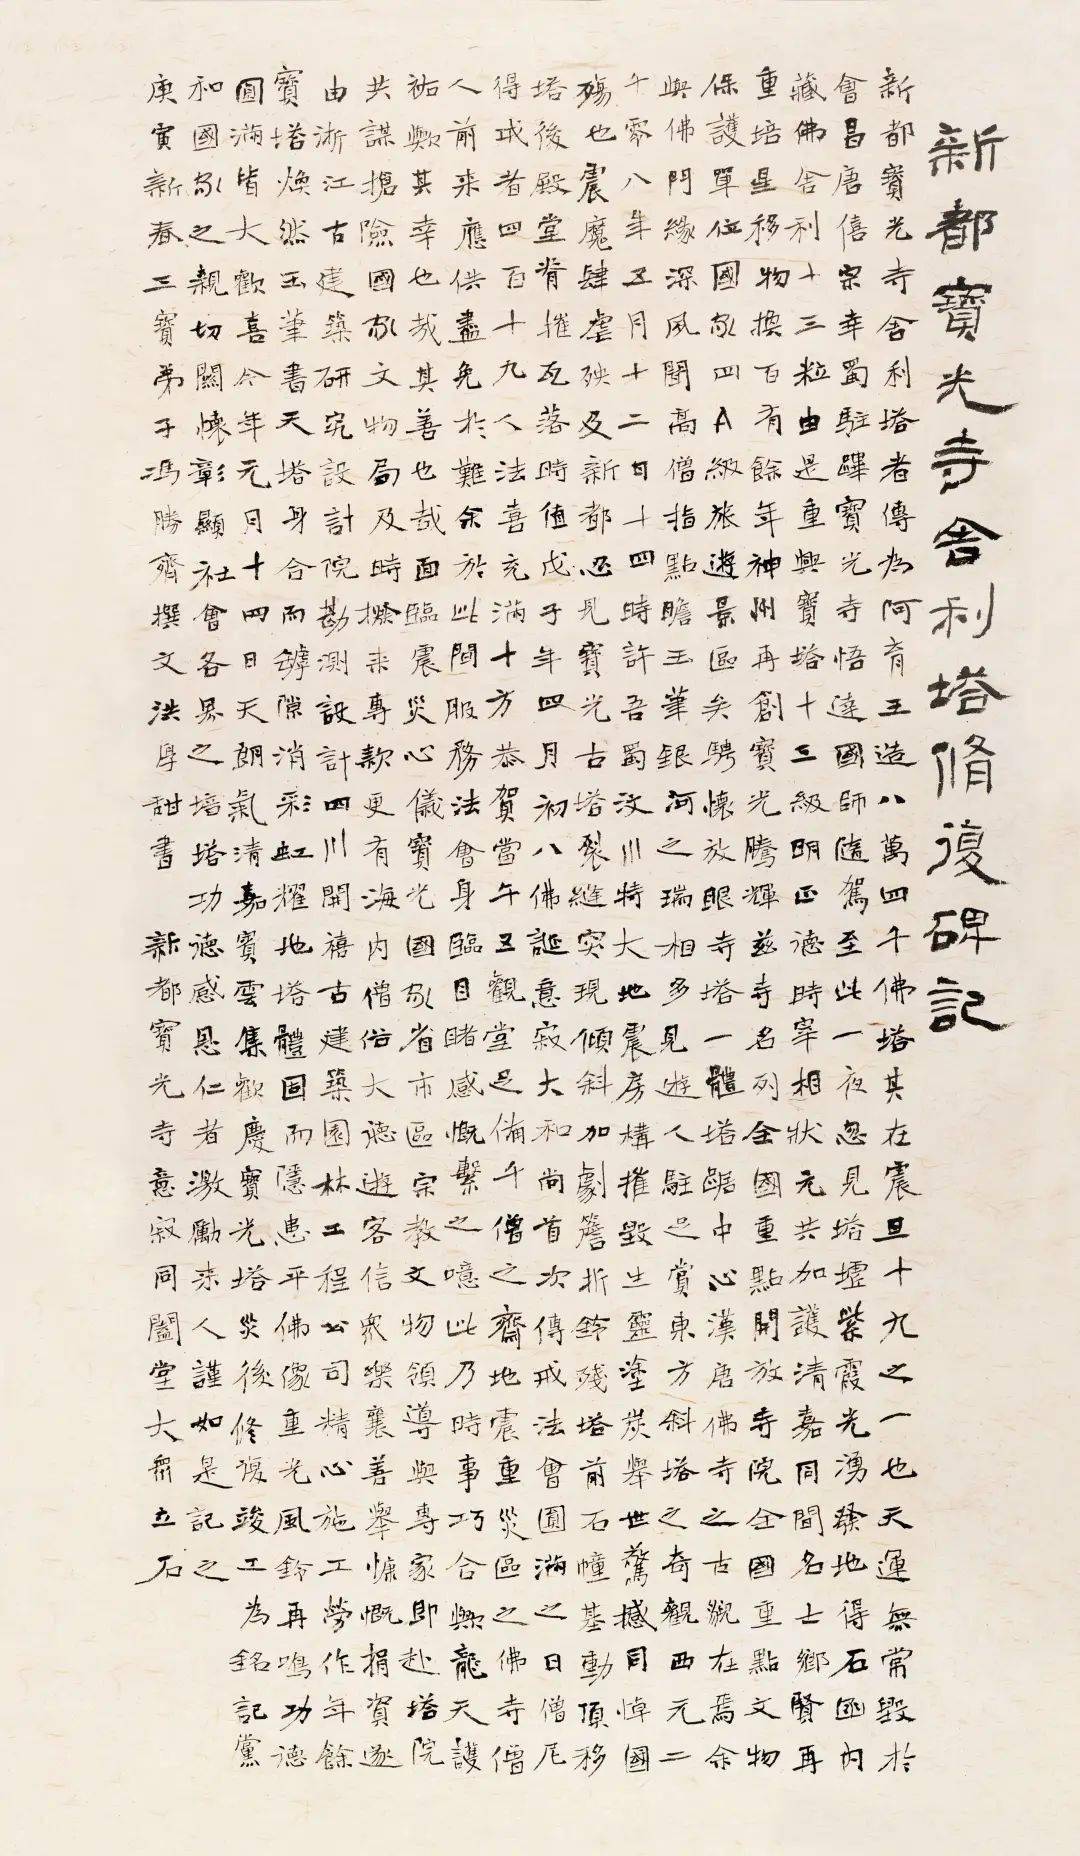 新都寶光寺舍利塔脩復碑記
新都寶光寺舍利塔者傳為阿育王造八萬四千佛塔其在震旦十九之一也天運無常毀於
會昌唐僖宗幸蜀駐蹕寶光寺悟達國師隨駕至此一夜忽見塔墟紫霞光湧發地得石函內
藏佛舍利十三粒由是重興寶塔十三級明正德時宰相狀元共加護清嘉同間名士鄉賢再
重培星移物換百有餘年神州再創寶光騰輝茲寺名列全國重點開放寺院全國重點文物
保護單位國家四A級旅遊景區矣騁懷放眼寺塔一體塔踞中心漢唐佛寺之古觀在焉余
與佛門緣深夙聞高僧指點瞻玉筆銀河之瑞相多見遊人駐足賞東方斜塔之奇觀西元二
千零八年五月十二日十四時許吾蜀汶川特大地震房構摧毀生靈塗炭舉世驚撼同悼國
殤也震魔肆虐殃及新都忍見寶光古塔裂縫突現傾斜加劇簷折鈴殘塔前石幢基動頂移
塔後殿堂脊摧瓦落時值戊子年四月初八佛誕意寂大和尚首次傳戒法會圓滿之日僧尼
得戒者四百十九人法喜充滿十方恭賀當午五觀堂足備千僧之齋地震重災區之佛寺僧
人前來應供盡免於難余於此間服務法會身臨目睹感慨繫之噫此乃時事巧合歟龍天護
祐歟其幸也哉其善也哉面臨震災心儀寶光國家省市區宗教文物領導與專家即赴塔院
共謀搶險國家文物局及時撥來專款更有海內僧俗大德遊客信眾樂襄善舉慷慨捐資遂
由浙江古建築研究設計院勘測設計四川開禧古建築園林工程公司精心施工勞作年餘
寶塔煥然玉筆書天塔身合而罅隙消彩虹耀地塔體固而隱患平佛像重光風鈴再鳴功德
圓滿皆大歡喜今年元月十四日天朗氣清嘉賓雲集歡慶寶光塔災後修復竣工為銘記黨
和國家之親切關懷彰顯社會各界之培塔功德感恩仁者激勵來人謹如是記之
庚寅新春三寶弟子馮勝齊撰文洪厚甜書 新都寶光寺意寂同闔堂大眾立石